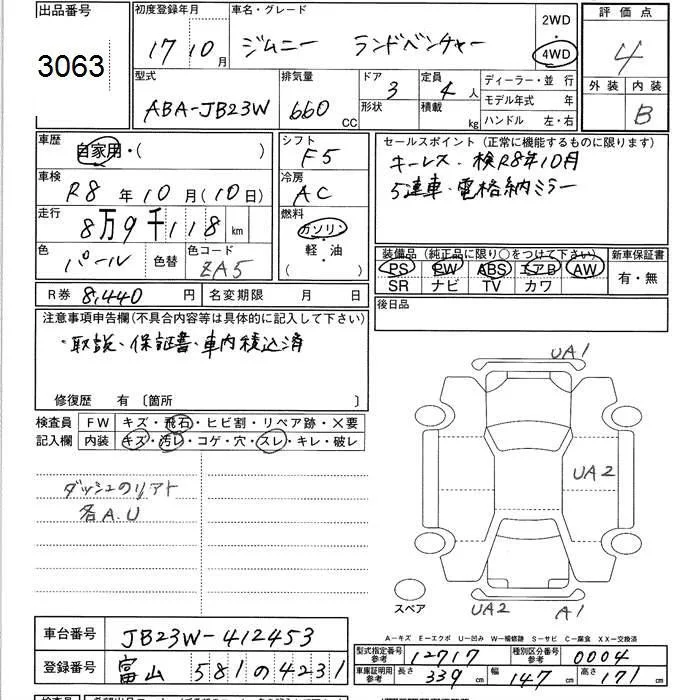 出品番号
3063
初度登録年月
17 10月
車名・グレード
ジムニー ランドベンチャー
2WD
4WD
評価点
4
外装 内装
B
型式
ABA-JB23W
排気量
660 CC
ドア 3
形状
定員 4人
積載 kg
ディーラー・並行
モデル年式 年
ハンドル 左・右
車歴
自家用・( )
車検
R8年10月(10日)
走行
8万9千118km
色
パール
色替
色コード
ZA5
シフト
F5
冷房
AC
燃料
ガソリン・
軽・油
セールスポイント (正常に機能するものに限ります)
キーレス・検R8年10月
5速車・電格納ミラー
装備品 (純正品に限り○をつけて下さい)
PS PW ABS エアB AW
SR ナビ TV カワ
新車保証書
有・無
R券 8,440円
名変期限 月 日
後日品
注意事項申告欄(不具合内容等は具体的に記入して下さい)
・取説・保証書・車内積込済
修復歴 有 〔箇所 〕
検査員
記入欄
FW キズ・飛石・ヒビ割・リペア跡・×要
内装 キズ・汚レ・コゲ・穴・スレ・キレ・破レ
ダッシュのリアト
各A.U
UA1
UA2
UA2
A1
スペア
A−キズ E−エクボ U−凹み W−補修跡 S−サビ C−腐食 XX−交換済
車台番号
JB23W-412453
登録番号
富山 581の4231
型式指定番号
参考
12717
種別区分番号
参考
0004
車庫証明用
参考
長さ 339cm
幅 147cm
高さ 171cm